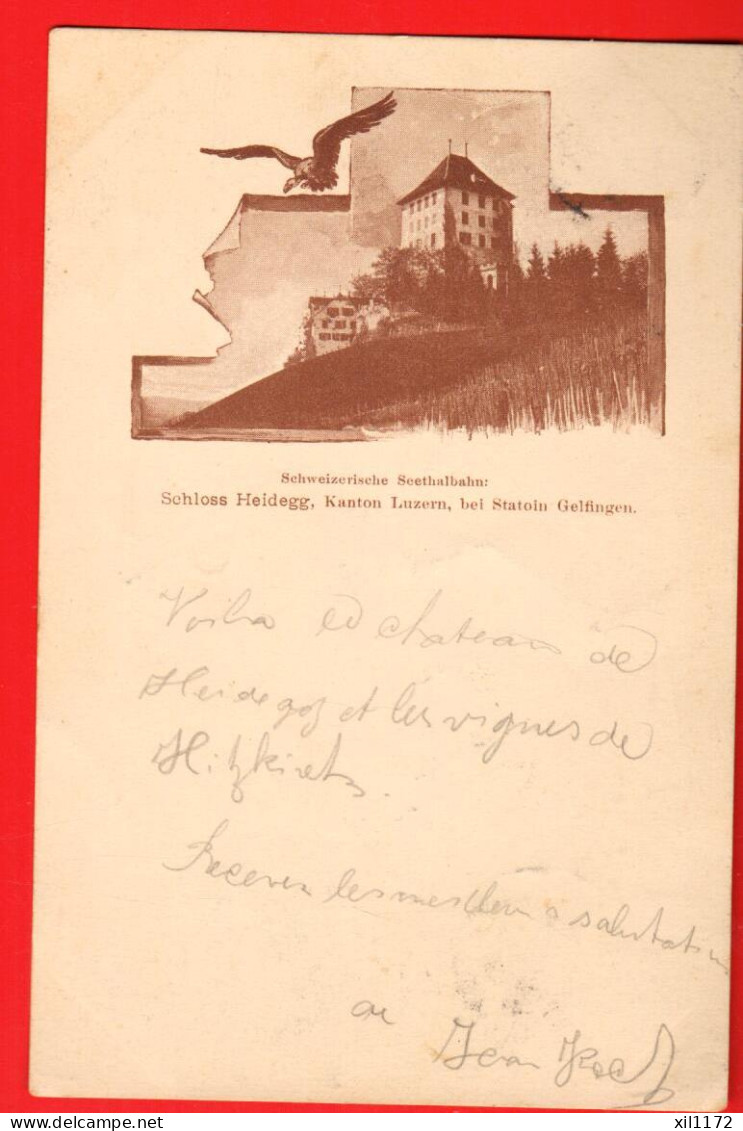 Schweizerische Seethalbahn:
Schloss Heidegg, Kanton Luzern, bei Statoin Gelfingen.
Voila le chateau de
Heidegg et les vignes de
Hitzkirch.
Recevez les meilleures salutations
de Jean
xil1172